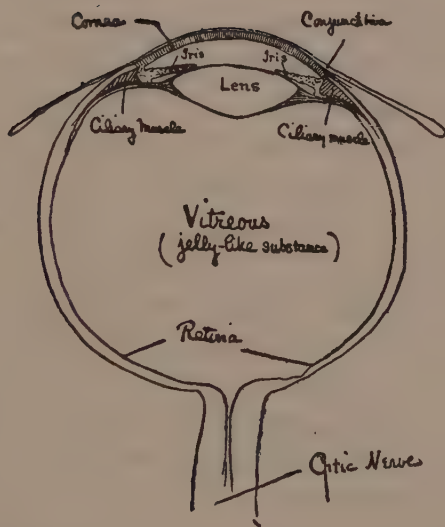 Cornea
Conjunctiva
Iris
Iris
Lens
Ciliary Muscle
Ciliary muscle
Vitreous
(jelly-like substance)
Retina
Optic Nerve